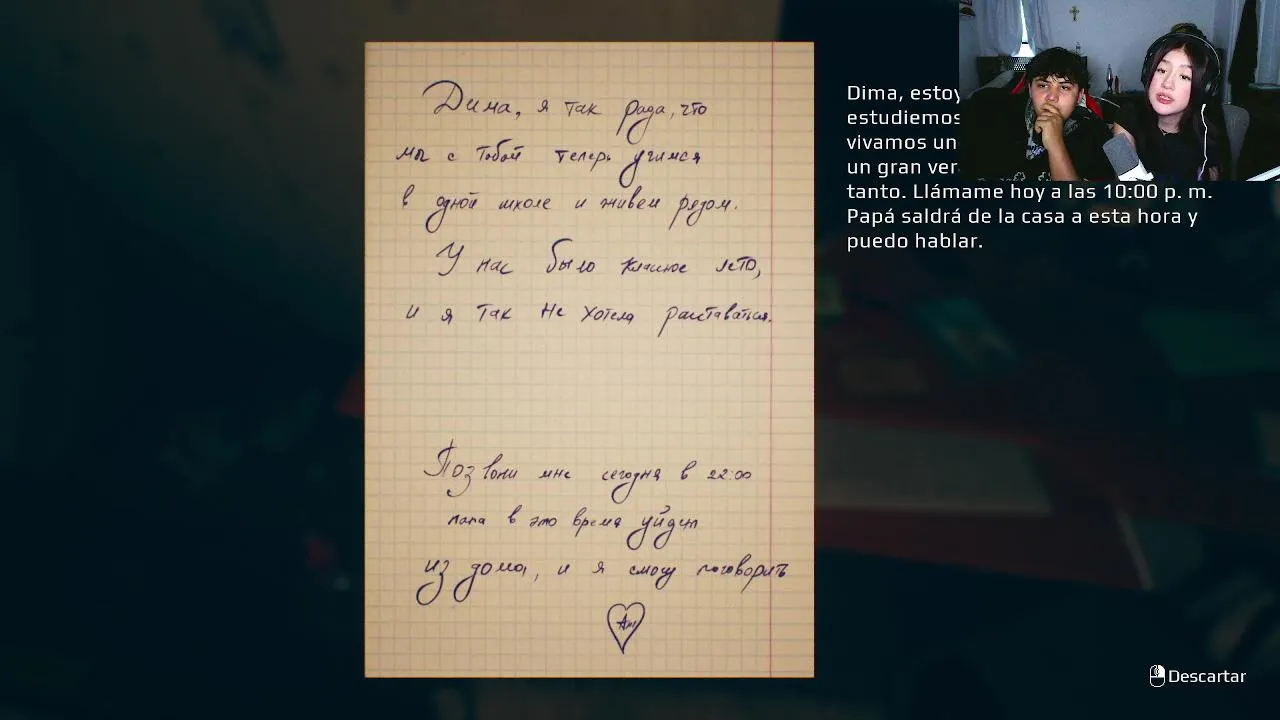 Дима, я так рада, что
мы с тобой теперь учимся
в одной школе и живем рядом.
У нас было классное лето,
и я так не хотела расставаться.
Позвони мне сегодня в 22:00
папа в это время уйдет
из дома, и я смогу поговорить
Дима, estoy
estudiemos
vivamos un
un gran ver
tanto. Llámame hoy a las 10:00 p. m.
Papá saldrá de la casa a esta hora y
puedo hablar.
Descartar